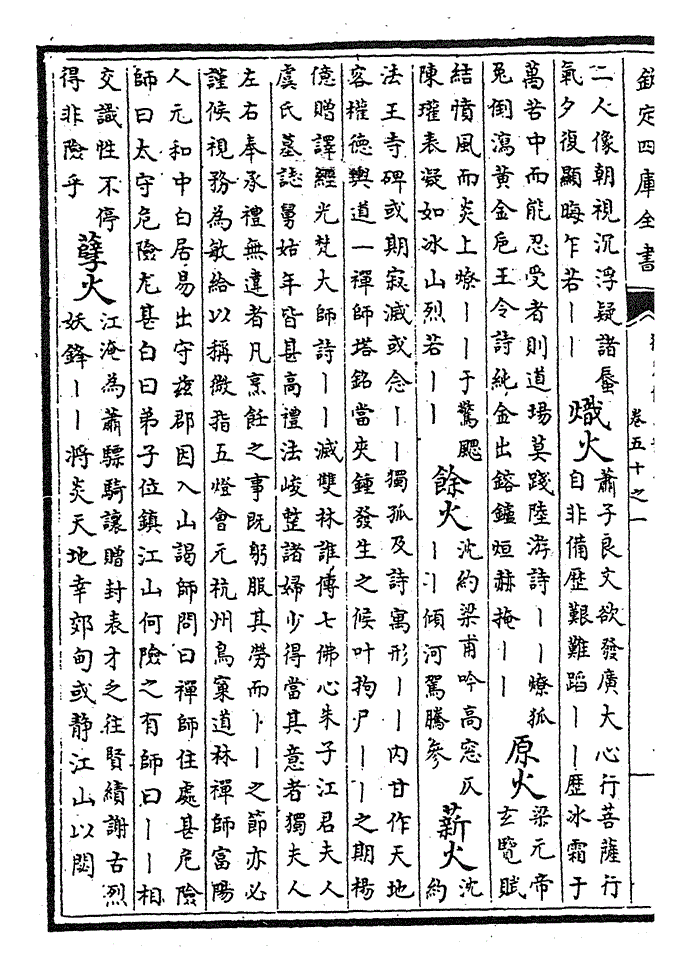 欽定四庫全書
卷五十之一
二人像朝視沉浮疑諸蜃
氣夕復顯晦乍若丨丨
熾火
蕭子良文欲發廣大心行菩薩行
自非備歴艱難蹈丨丨歴冰霜于
萬苦中而能忍受者則道場莫踐陸游詩丨丨燎狐
兔倒瀉黄金巵王令詩純金出鎔鑪烜赫掩丨丨
原火
梁元帝
玄覽賦
結憤風而炎上燎丨丨于驚颸
陳瓘表凝如冰山烈若丨丨
餘火
沈約梁甫吟高窓仄
丨丨傾河駕騰參
薪火
沈
約
法王寺碑或期寂滅或念丨丨獨孤及詩寓形丨丨内甘作天地
容權德輿道一禪師塔銘當夾鍾發生之候叶拘尸丨丨之期楊
億贈譯經光梵大師詩丨丨滅雙林誰傳七佛心朱子江君夫人
虞氏墓誌舅姑年皆甚高禮法峻整諸婦少得當其意者獨夫人
左右奉承禮無違者凡烹飪之事既躬服其勞而丨丨之節亦必
謹候視務為敏給以稱微指五燈會元杭州鳥窠道林禪師富陽
人元和中白居易出守兹郡因入山謁師問曰禪師住處甚危險
師曰太守危險尤甚白曰弟子位鎮江山何險之有師曰丨丨相
交識性不停
得非險乎
孽火
江淹為蕭驃騎讓贈封表才乏往賢績謝古烈
妖鋒丨丨將炎天地幸郊甸或静江山以闋